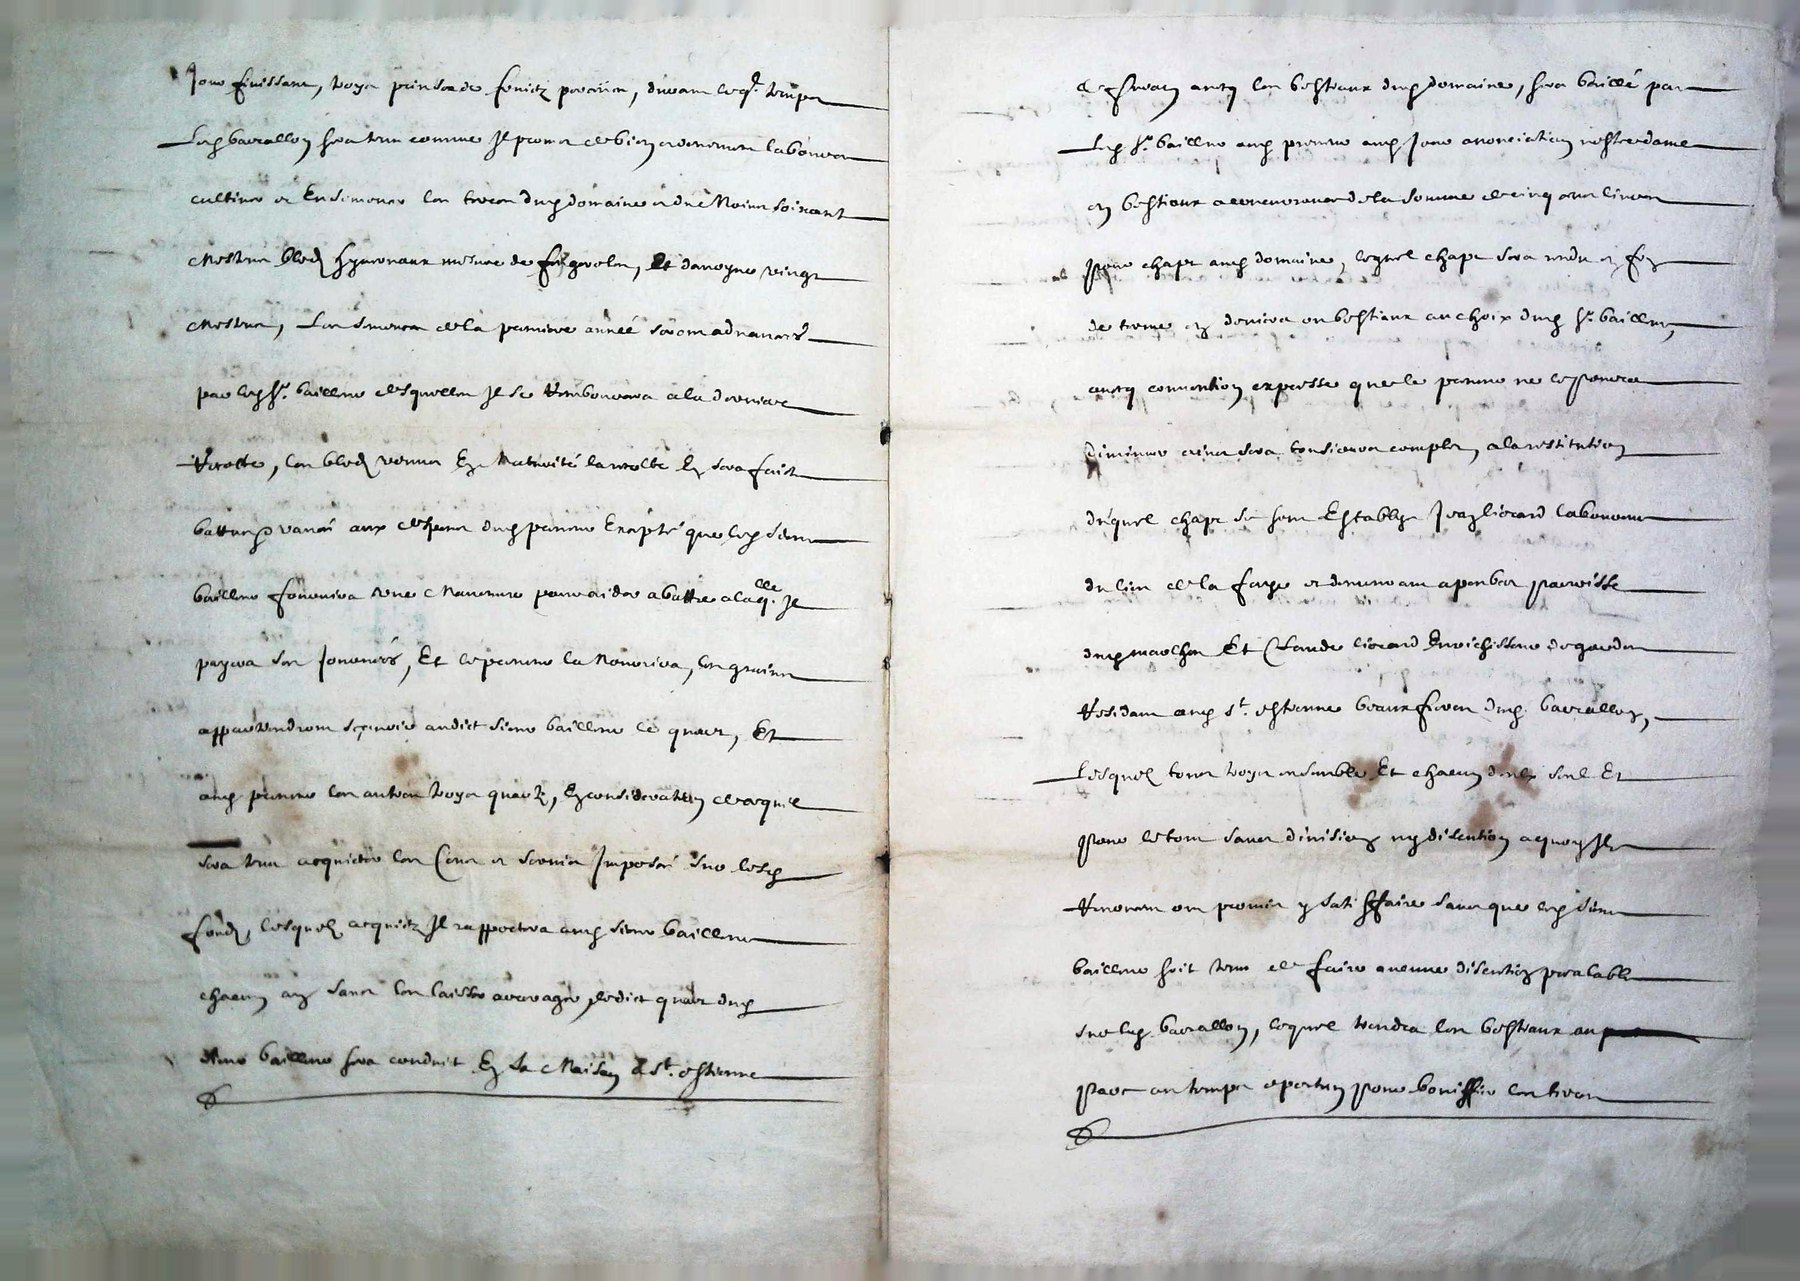 Jour finissant, troys prinses de fruictz parceües, durant leq.l temps
Led barrallon sera tenu comme Jl promet de bien et deuement labourer
cultiver et Ensemencer les terres dud domaine et du Moins soixante
Mestiers bledz hyvernaux mesure de feugerolles, Et davoyne vingt
Mestiers, Les semences de la premiere année seront advancés
par led s.r bailleur desquelles Jl se Remboursera a la derniere
Recolte, les bledz venus En Maturité la recolte En sera faicte
battus et vanés aux despens dud preneur Excepté que led sieur
bailleur fournira une Manoeuvre pour aider a battre a laq.lle Jl
payera ses Journées, Et le preneur la Nourrira, les grains
appartiendront sçavoir audict sieur bailleur le quart, Et
aud preneur les autres troys quartz, En consideration de ce quil
sera tenu acquicter les Cens et servis Jmposés sur lesd
fondz, lesquelz acquictz Jl rapportera aud sieur bailleur
chacun an sans les laisser arreragér, ledict quart dud
sieur bailleur sera conduit En sa Maison de S.t estienne
par led barrallon, lequel tiendra les bestiaux au
de bestiaux dud domaine, sera baillé par
Led s.r bailleur aud preneur aud Jour anonciation nostre dame
en bestiaux a concurrance de la somme de cinq cens livres
pour chapt aud domaine, lequel chapt sera rendu en fin
de terme en deniers ou bestiaux au choix dud s.r bailleur,
avecq convention expresse que le preneur ne le pourra
diminuer ains sera tousiours complet, a la restitution
duquel chapt se sont Establys Jean liorard laboureur
du lieu de la forge et demeurant a paroisse
dud marlhes Et Claude liorard Enrichisseur de gardes
Residant aud S.t estienne beaux freres dud barrallon,
Lesquelz tous troys ensemble Et chacun deulx seul Et
pour le tout sans division ny discution a quoy Jlz
Renoncent ont promis y satisffaire sans que led sieur
bailleur soit tenu de faire aucune discution prealable
sur led barrallon, lequel tiendra les bestiaux au
parc au temps oportun pour bonniffier les terres